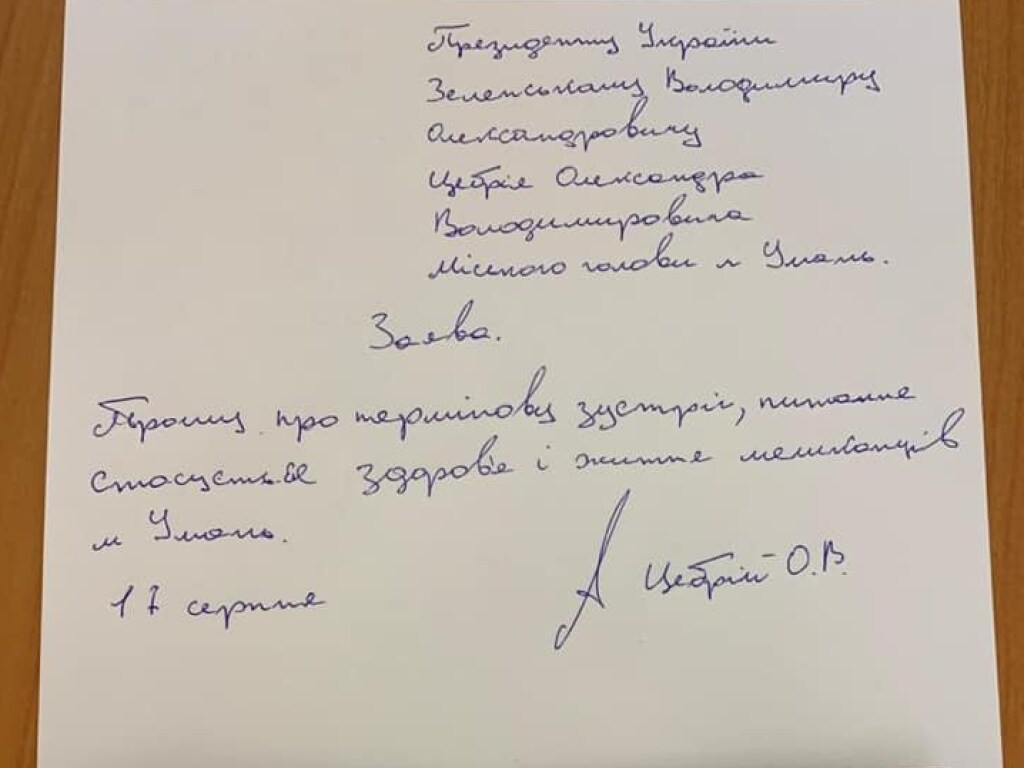 Президенту України
Зеленському Володимиру
Олександровичу
Цебрія Олександра
Володимировича
Міського голови м Умань.
Заява.
Прошу про термінову зустріч, питання
стосується здоров'я і життя мешканців
м Умань.
17 серпня
Цебрій О.В.